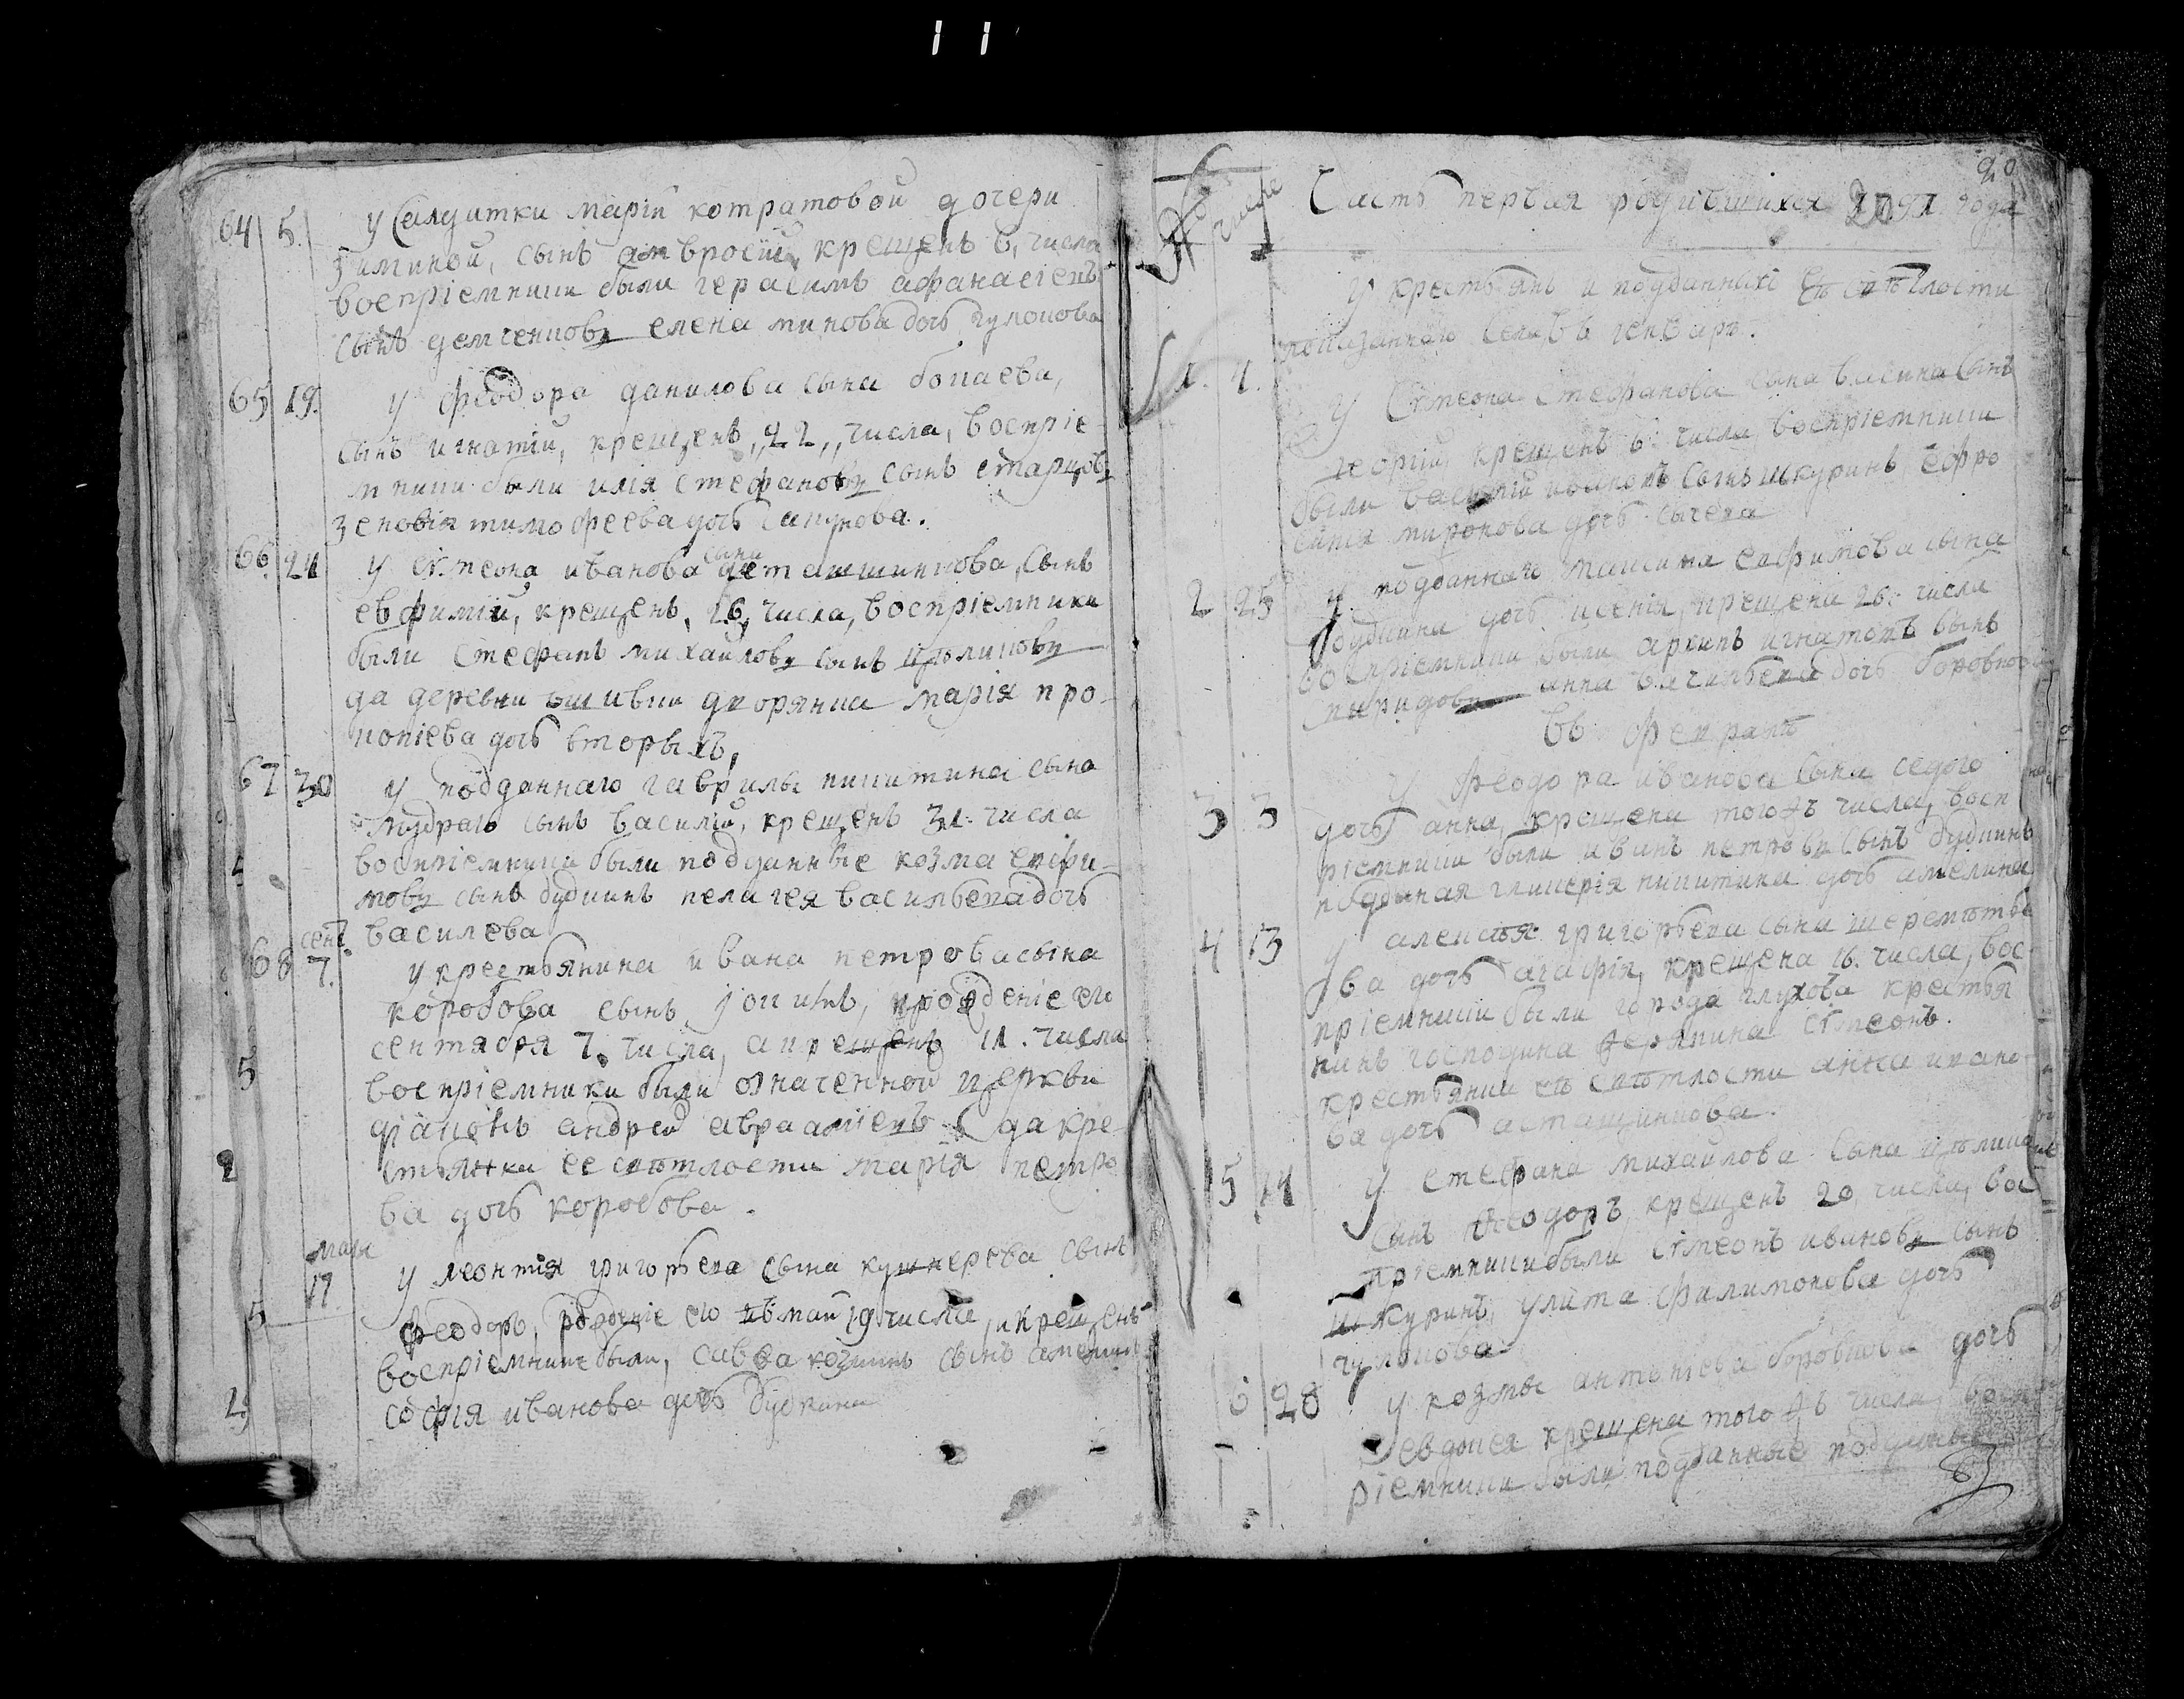 64 5. У Салдатки марїи котратовой дочери
зиминой, сынъ амвросїй, крещенъ 6, числа
воспрїемники были герасимъ афанасїевъ
сынъ демченковъ елена минова дочь гулоцова
65 19. У феодора данилова сына бопаева,
сынъ игнатїй, крещенъ, 22, числа, воспрїе
мники были илїя стефановъ сынъ старцовъ
зеновїя тимофеева дочь сапунова.
66 24 У сѵмеона иванова сына асташинцова, сынъ
евфимїй, крещенъ, 26, числа, воспрїемники
были стефанъ михайловъ сынъ цѣликовъ
да деревни дворянка марїя про
копїева дочь вторыхъ,
67 30 У подданнаго гаврилы никитина сына
мудраго сынъ василїй, крещенъ 31. числа
воспрїемники были подданные козма евфи
мовъ сынъ будкинъ пелагея васильева дочь
василева
68 сент 7. У крестьянина ивана петрова сына
коробова сынъ, їоакимъ, рождение его
сентября 7. числа, а крещенъ 11. числа
воспрїемники были означенной церкви
дїаконъ андрей авраамїевъ да кре
стьянка ее свѣтлости марїя петро
ва дочь коробова.
маїя 17 У леонтїя григорьева сына кушнерева сынъ
феодоръ, рождение его въ маїи 19 числа, и крещенъ
воспрїемники были, савва козминъ сынъ амелинъ
софїя иванова дочь будкина
5
2
5
2
20
числа Часть первая родившихся 1791 года
У крестьянъ и подданныхъ Ея свѣтлости
показаннаго села, въ генварѣ.
1. 4. У Сѵмеона Стефанова сына васина сынъ
георгїй, крещенъ 6: числа, воспрїемники
были василїй сынъ шкуринъ, ефро
синїя миронова дочь сычева
2 25 У подданнаго максима евфимова сына
будкина дочь ксенїя, крещена 26: числа
воспрїемники были архипъ игнатовъ сынъ
спиридовъ анна васильева дочь боровкова
въ февралѣ
3 3 У феодора иванова сына седого
дочь анна, крещена того жъ числа, восп
рїемники были иванъ петровъ сынъ будкинъ
подданая гликерїя никитина дочь амелина
4 13 У алексѣя григорьева сына шереметье
ва дочь агафїя, крещена 16. числа, вос
прїемники были города глухова крестья
нинъ господина дерягина сѵмеонъ.
крестьянки ея свѣтлости анна ивано
ва дочь асташинцова.
5 14 У стефана михайлова сына цѣликова
сынъ Феодоръ, крещенъ 20 числа, вос
прїемники были Сѵмеонъ ивановъ сынъ
шкуринъ, улита филимонова дочь
гулоцова
6 28 У козмы антонїева боровкова дочь
евдокея крещена того жъ числа восп
рїемники были, подданные